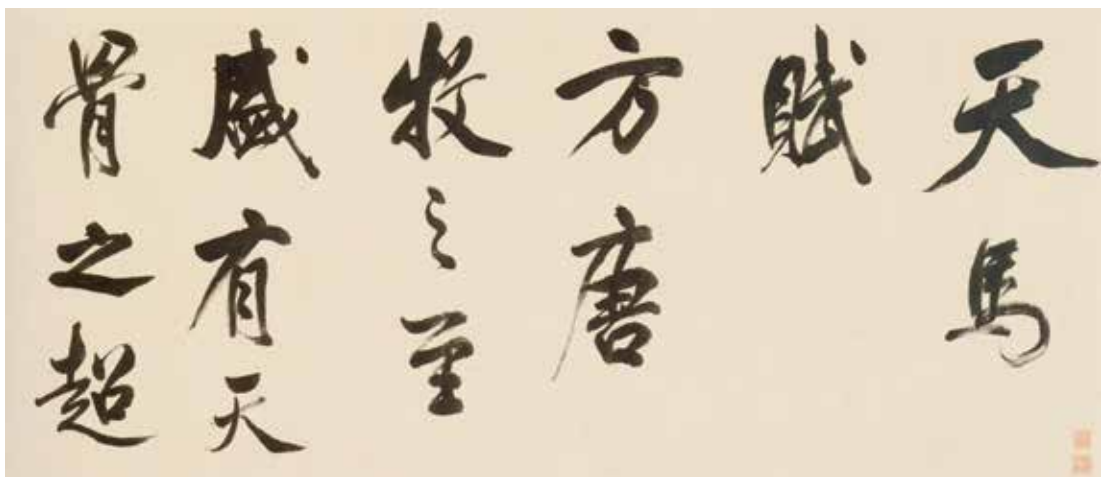 天馬
賦
方唐
牧之至
盛有天
骨之超